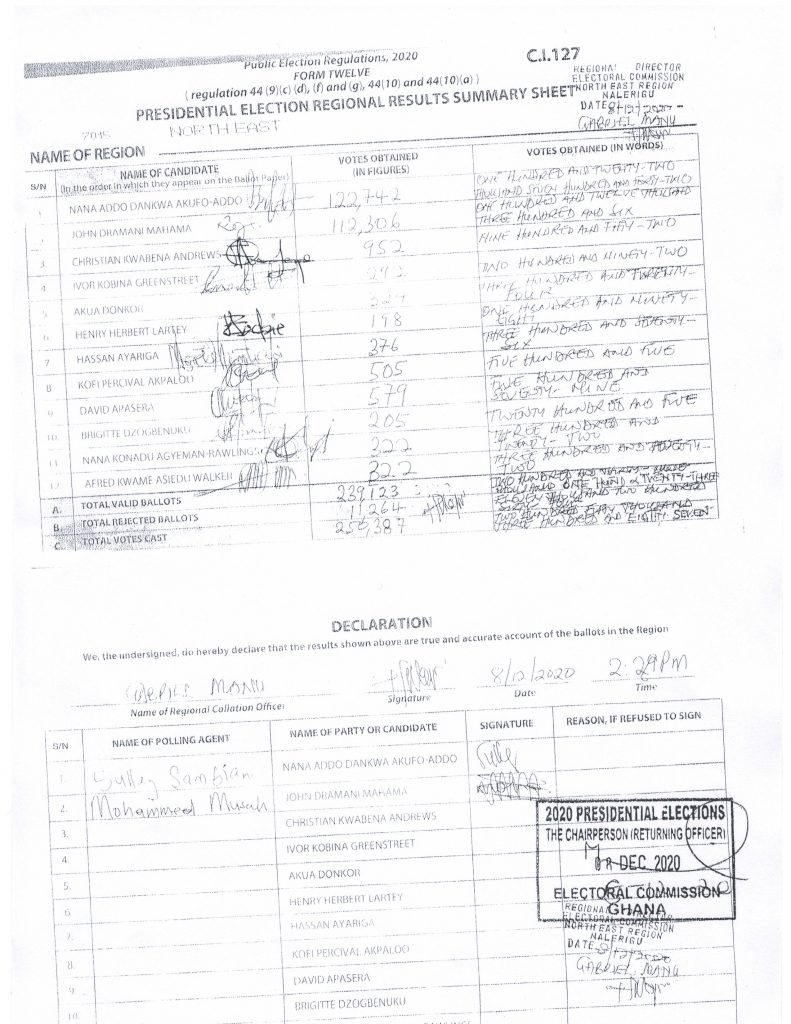 Public Election Regulations, 2020
C.I.127
FORM TWELVE
( regulation 44 (9)(c) (d), (f) and (g), 44(10) and 44(10)(a) )
PRESIDENTIAL ELECTION REGIONAL RESULTS SUMMARY SHEET
REGIONAL DIRECTOR
ELECTORAL COMMISSION
NORTH EAST REGION
NALERIGU
DATE 8/12/2020
GABRIEL MANU
NAME OF REGION NORTH EAST
S/N NAME OF CANDIDATE (In the order in which they appear on the Ballot Paper) VOTES OBTAINED (IN FIGURES) VOTES OBTAINED (IN WORDS)
1 NANA ADDO DANKWA AKUFO-ADDO 122,742 ONE HUNDRED AND TWENTY-TWO THOUSAND SEVEN HUNDRED AND FORTY-TWO
2 JOHN DRAMANI MAHAMA 112,306 ONE HUNDRED AND TWELVE THOUSAND THREE HUNDRED AND SIX
3 CHRISTIAN KWABENA ANDREWS 952 NINE HUNDRED AND FIFTY-TWO
4 IVOR KOBINA GREENSTREET 292 TWO HUNDRED AND NINETY-TWO
5 AKUA DONKOR THREE HUNDRED AND
6 HENRY HERBERT LARTEY 198 ONE HUNDRED AND NINETY-EIGHT
7 HASSAN AYARIGA 376 THREE HUNDRED AND SEVENTY-SIX
8 KOFI PERCIVAL AKPALOO 505 FIVE HUNDRED AND FIVE
9 DAVID APASERA 579 FIVE HUNDRED AND SEVENTY-NINE
10 BRIGITTE DZOGBENUKU 205 TWENTY HUNDRED AND FIVE
11 NANA KONADU AGYEMAN-RAWLINGS 322 THREE HUNDRED AND TWENTY-TWO
12 AFRED KWAME ASIEDU WALKER 322 THREE HUNDRED AND TWO
A. TOTAL VALID BALLOTS 239,123 TWO HUNDRED AND THOUSAND ONE HUND & TWENTY-THREE
B. TOTAL REJECTED BALLOTS 11,264 ELEVEN THOUSAND TWO HUNDRED
C. TOTAL VOTES CAST 250,387 TWO HUNDRED FIFTY THOUSAND THREE HUNDRED AND EIGHTY SEVEN
DECLARATION
We, the undersigned, do hereby declare that the results shown above are true and accurate account of the ballots in the Region
MANU 8/12/2020 2:29PM
Name of Regional Collation Officer Signature Date Time
S/N NAME OF POLLING AGENT NAME OF PARTY OR CANDIDATE SIGNATURE REASON, IF REFUSED TO SIGN
1. Sulley Sambian NANA ADDO DANKWA AKUFO-ADDO
2. Mohammed Musah JOHN DRAMANI MAHAMA
3. CHRISTIAN KWABENA ANDREWS
4. IVOR KOBINA GREENSTREET
5. AKUA DONKOR
6. HENRY HERBERT LARTEY
7. HASSAN AYARIGA
8. KOFI PERCIVAL AKPALOO
9. DAVID APASERA
10. BRIGITTE DZOGBENUKU
2020 PRESIDENTIAL ELECTIONS
THE CHAIRPERSON (RETURNING OFFICER)
08 DEC 2020
ELECTORAL COMMISSION
GHANA
REGIONAL DIRECTOR
ELECTORAL COMMISSION
NORTH EAST REGION
NALERIGU
DATE
GABRIEL MANU